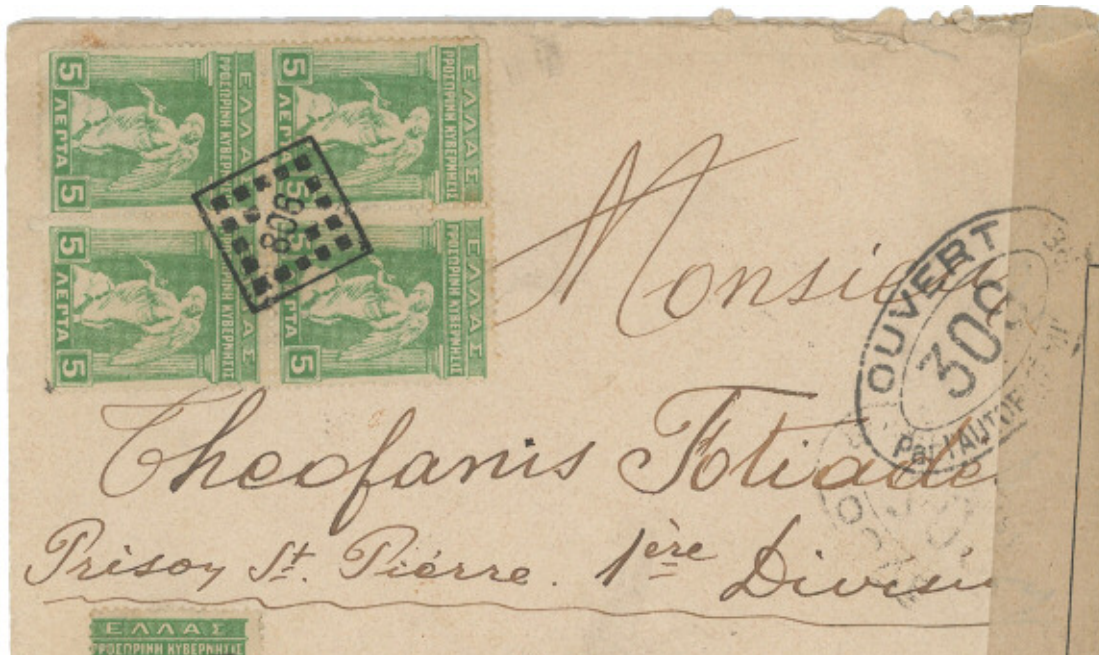 ΕΛΛΑΣ
ΠΡΟΣΩΡΙΝΗ ΚΥΒΕΡΝΗΣΙΣ
5 ΛΕΠΤΑ 5
ΕΛΛΑΣ
ΠΡΟΣΩΡΙΝΗ ΚΥΒΕΡΝΗΣΙΣ
5 ΛΕΠΤΑ 5
ΕΛΛΑΣ
ΠΡΟΣΩΡΙΝΗ ΚΥΒΕΡΝΗΣΙΣ
5 ΛΕΠΤΑ 5
ΕΛΛΑΣ
ΠΡΟΣΩΡΙΝΗ ΚΥΒΕΡΝΗΣΙΣ
ΛΕΠΤΑ 5
806
Monsieu
OUVERT
309
Par l'AUTOR
Theofanis Fotiade
Prison St. Piérre. 1ère Divisi
ΕΛΛΑΣ
ΠΡΟΣΩΡΙΝΗ ΚΥΒΕΡΝΗΣΙΣ